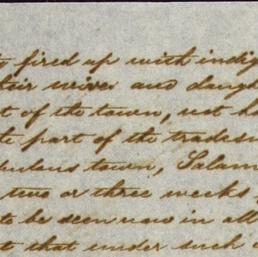 fired up with indig
their wives and daugh
t of the town, not h
te part of the tradesm
pulous town, Salam
two or three weeks,
to be seen now in all
t that under such